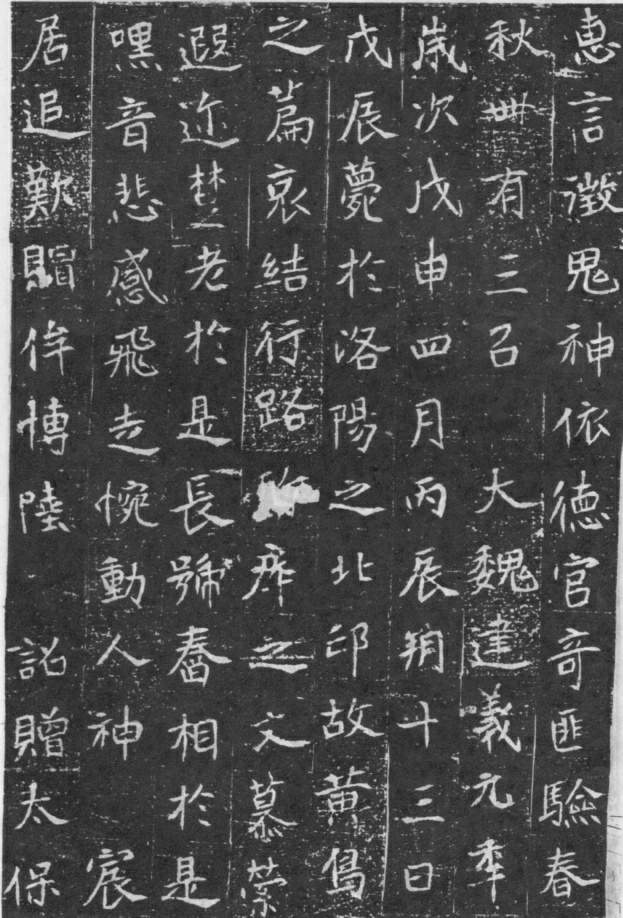 惠言徵鬼神依德官奇匪驗春
秋卌有三召大魏建義元年
歲次戊申四月丙辰朔十三日
戊辰薨於洛陽之北邙故黃鳥
之篇哀結行路斥之文慕縈
遐迩楚老於是長號舂相於是
嘿音悲感飛走惋動人神宸
居追歎賵侔博陸詔贈太保